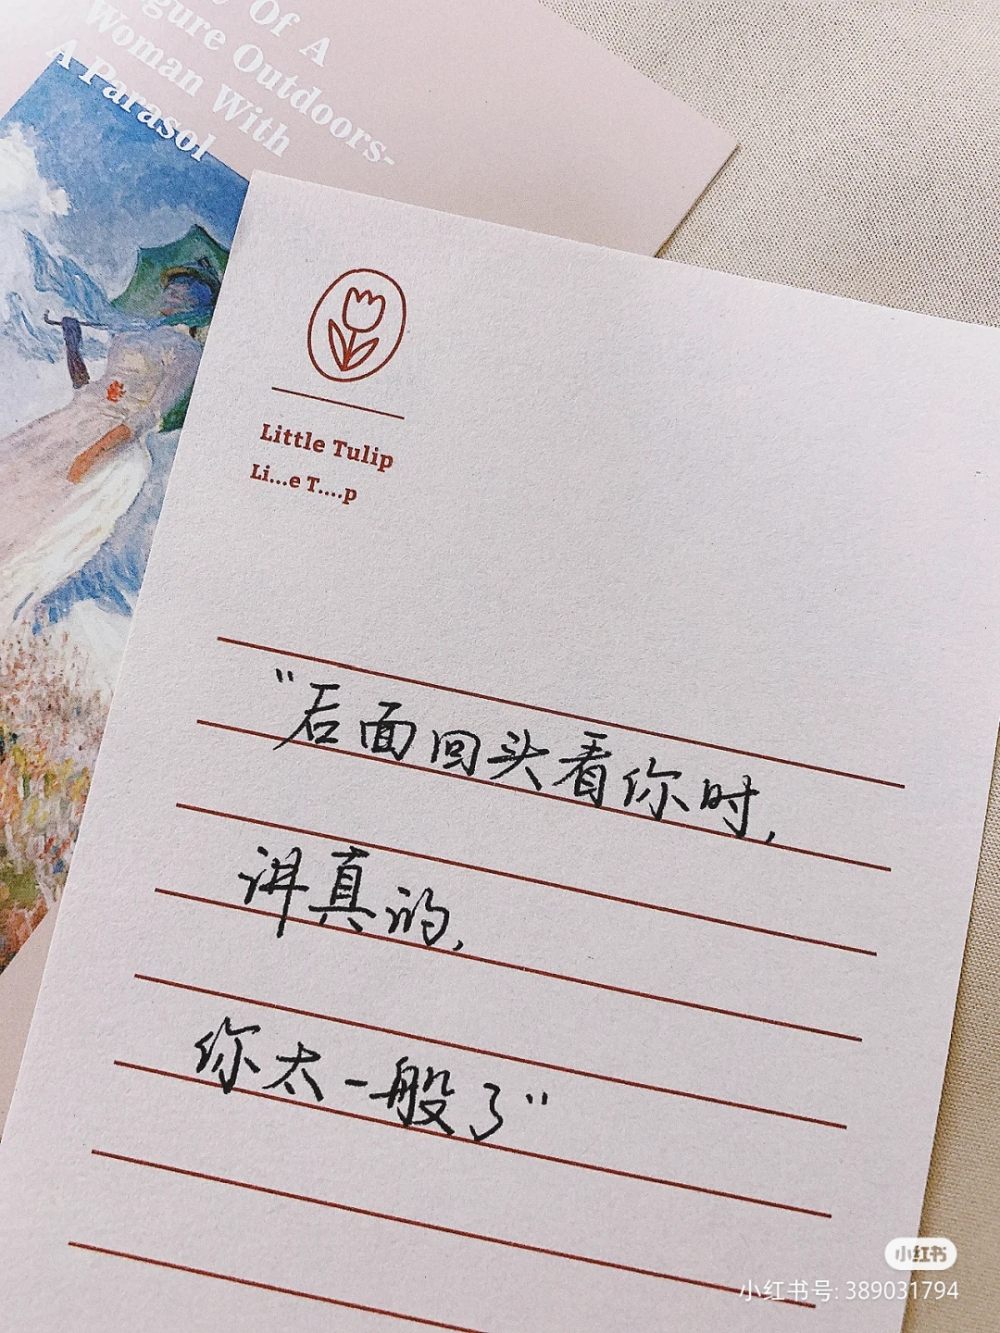 y Of A
gure Outdoors-
Woman With
A Parasol
Little Tulip
Li...e T....p
“后面回头看你时,
讲真的,
你太一般了”
小红书
小红书号: 389031794